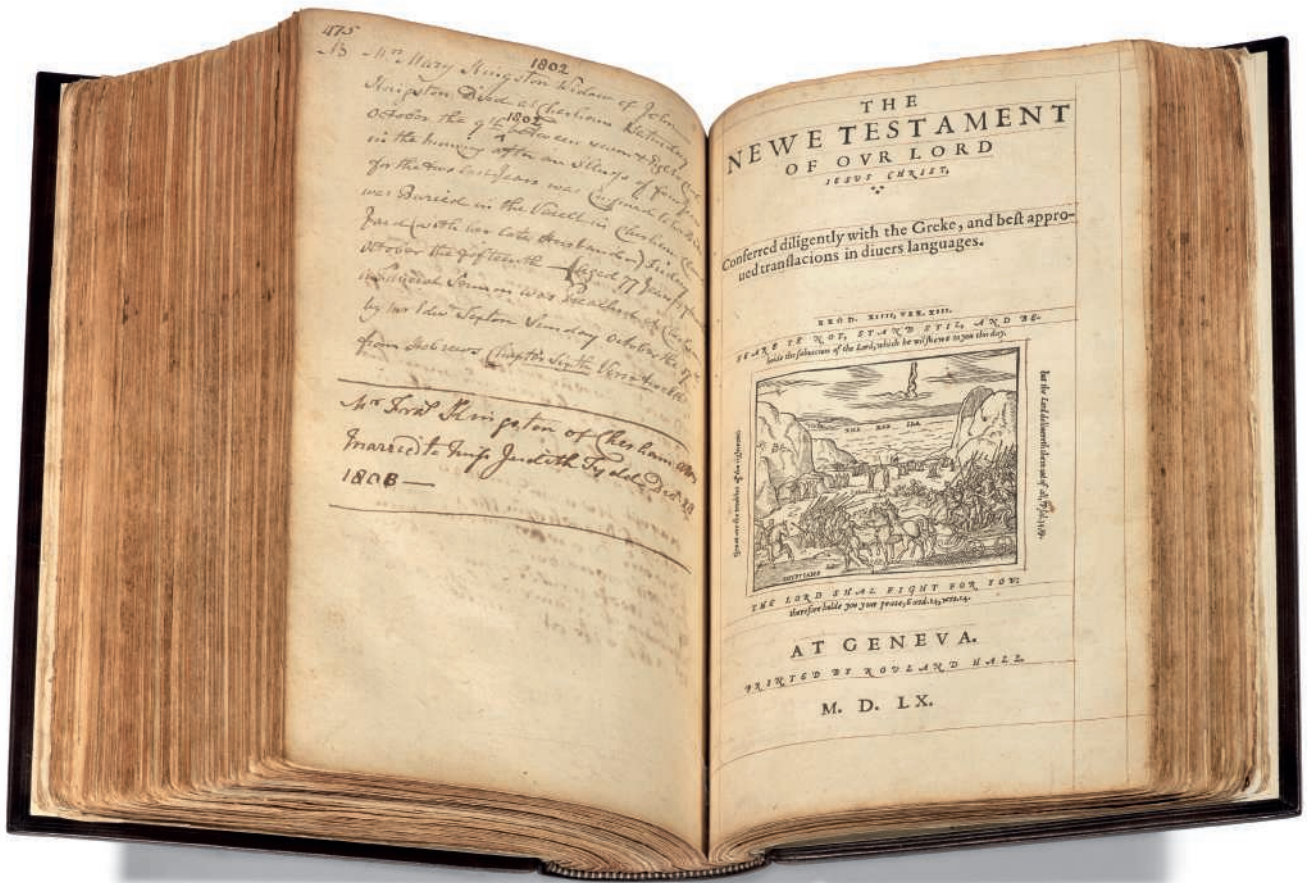 475
1802
Mrs Mary Kingston Widow of John
Kingston Died at Chesham Saturday
1802
October the 9th between seven & Eight
in the morning after an Illness of
for the two last Years was Confined to her
was Buried in the Vault in Chesham
Yard (with her late Husband) Friday
October the fifteenth — aged 77 Years
Funeral Sermon was Preached at Chesham
by Mr Sexton Sunday October the 17
from Hebrews Chapter Sixth Verse twelfth
Mr Kingston of Chesham was
Married to Miss Judith
1808 —
THE
NEWE TESTAMENT
OF OVR LORD
IESUS CHRIST,
Conferred diligently with the Greke, and beſt appro-
ued tranſlacions in diuers languages.
EXOD. XIIII, VER. XIII.
FEARE YE NOT, STAND STIL, AND BE-
holde the ſaluacion of the Lord, which he wil ſhewe to you this day.
THE RED SEA.
Great are the troubles of the righteous:
but the Lord deliuereth them out of all, Pſal. 34,19.
EGYPTIANS
THE LORD SHAL FIGHT FOR YOU:
therefore holde you your peace, Exod. 14, vers. 14.
AT GENEVA.
PRINTED BY ROVLAND HALL
M. D. LX.